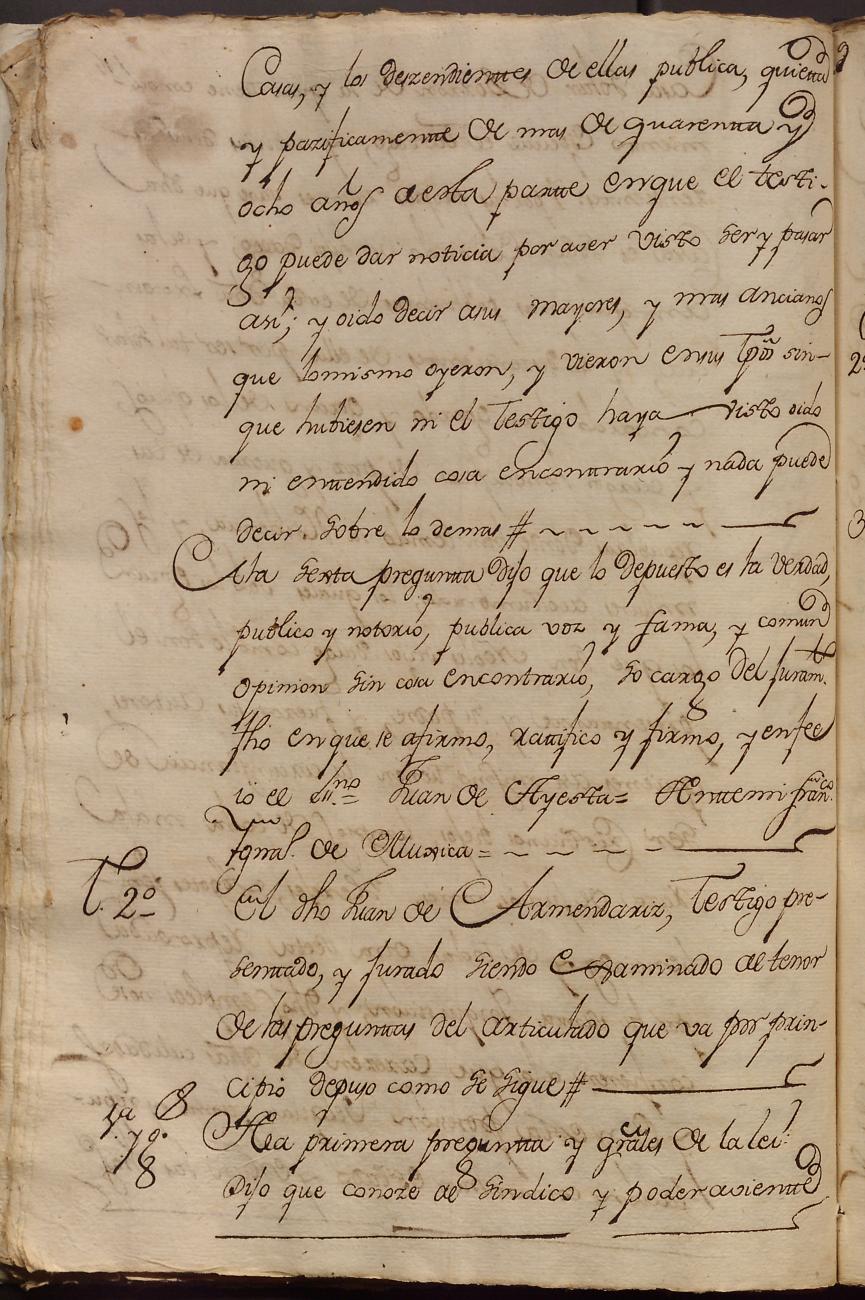 Casas, y los deszendienttes de ellas publica, quietta
y pazificamentte de mas de quarentta y
ocho años a esta partte en que el testi-
go puede dar noticia por aver visto ser y pasar
asi; y oido decir a sus mayores, y mas ancianos
que lo mismo oyeron, y vieron en sus tpõs sin-
que hubiesen ni el testigo haya visto oido
ni enttendido cosa en conttrario y nada puede
decir sobre lo demas #
A la sexta preguntta dijo que lo depuesto es la verdad,
publico y notorio, publica voz y fama, y comun
opinion sin cosa en contrario, so cargo del juramto.
fho en que se afirmo, rattifico y firmo, y en fee
io el Ssno = Juan de Ayesta = Antte mi Franco
Ignal. de Muxica =
T. 2º
El dho Juan de Armendariz, Testigo pre-
senttado, y jurado siendo examinado al tenor
de las preguntas del articulado que va por prin-
cipio depuso como se sigue #
1ª
A la primera preguntta y grãles de la lei:
Dijo que conoze al Sindico y poder avientte